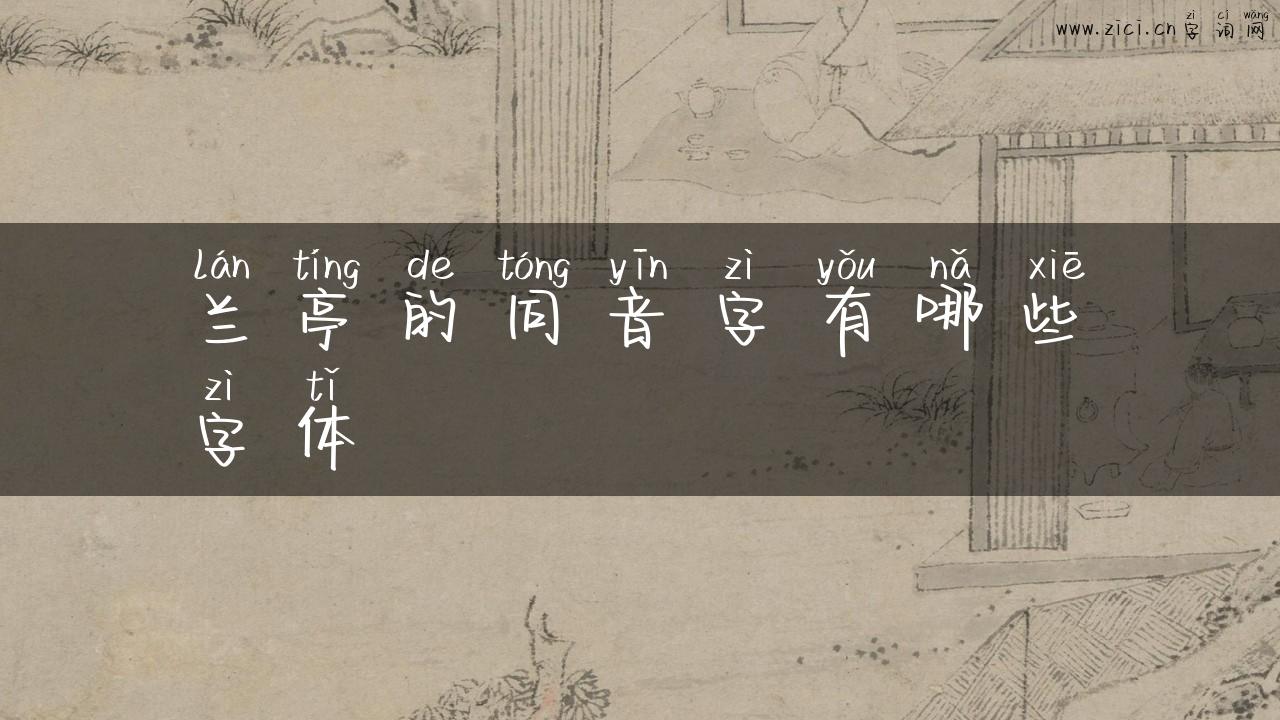 zì cí wǎng
www.zici.cn 字 词 网
lán tíng de tóng yīn zì yǒu nǎ xiē
兰 亭 的 同 音 字 有 哪 些
zì tǐ
字 体